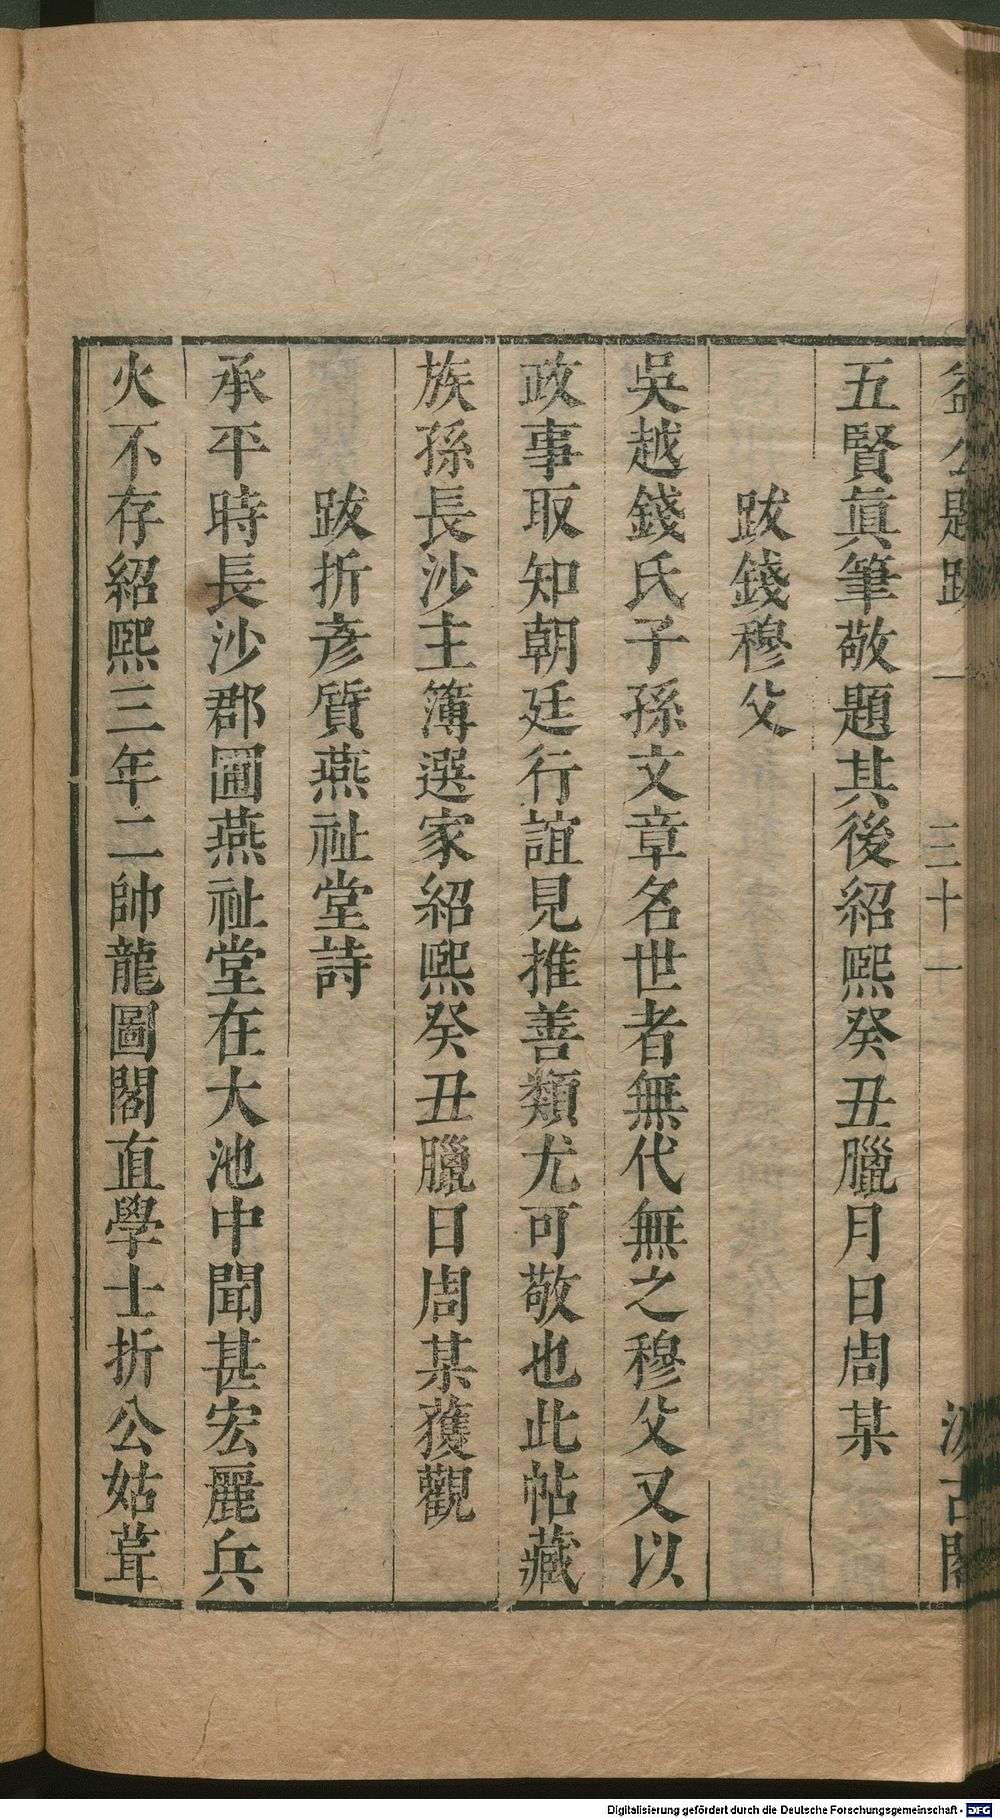 益公題跋 一 三十一 汲古閣
五賢眞筆敬題其後紹熙癸丑臘月日周某
跋錢穆父
吳越錢氏子孫文章名世者無代無之穆父又以
政事取知朝廷行誼見推善類尤可敬也此帖藏
族孫長沙主簿選家紹熙癸丑臘日周某獲觀
跋折彥質燕祉堂詩
承平時長沙郡圃燕祉堂在大池中聞甚宏麗兵
火不存紹熙三年二帥龍圖閣直學士折公姑葺
Digitalisierung gefördert durch die Deutsche Forschungsgemeinschaft - DFG